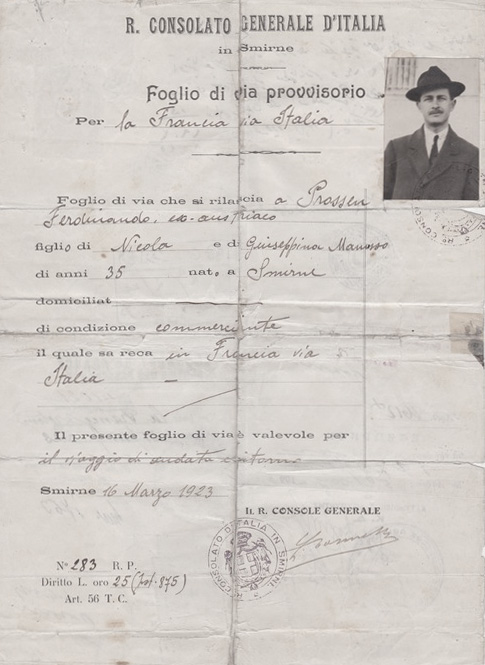 R. CONSOLATO GENERALE D'ITALIA
in Smirne
Foglio di via provvisorio
Per la Francia via Italia
Foglio di via che si rilascia a Prossen
Ferdinando, ex-austriaco
figlio di Nicola e di Giuseppina
di anni 35 nato a Smirne
domiciliat
di condizione commerciante
il quale sa reca in Francia via
Italia
Il presente foglio di via è valevole per
il viaggio di andata e ritorno
Smirne 16 Marzo 1923
IL R. CONSOLE GENERALE
R. CONSOLATO D'ITALIA IN SMIRNE
Nº 283 R. P.
Diritto L. oro 25 (Lst. 875)
Art. 56 T. C.